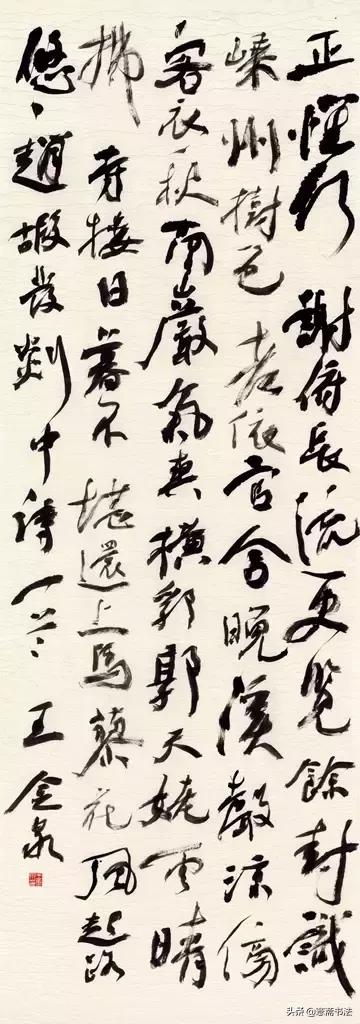 正懷何謝俯長流更覽餘封識
嵊州樹色老依官舍晚溪聲涼傍
客衣秋南巖氣爽橫郛郭天姥雲晴
拂寺樓日暮不堪還上馬蓼花風起路
悠悠趙嘏發剡中詩一首 王金泉
头条 @寒斋书法